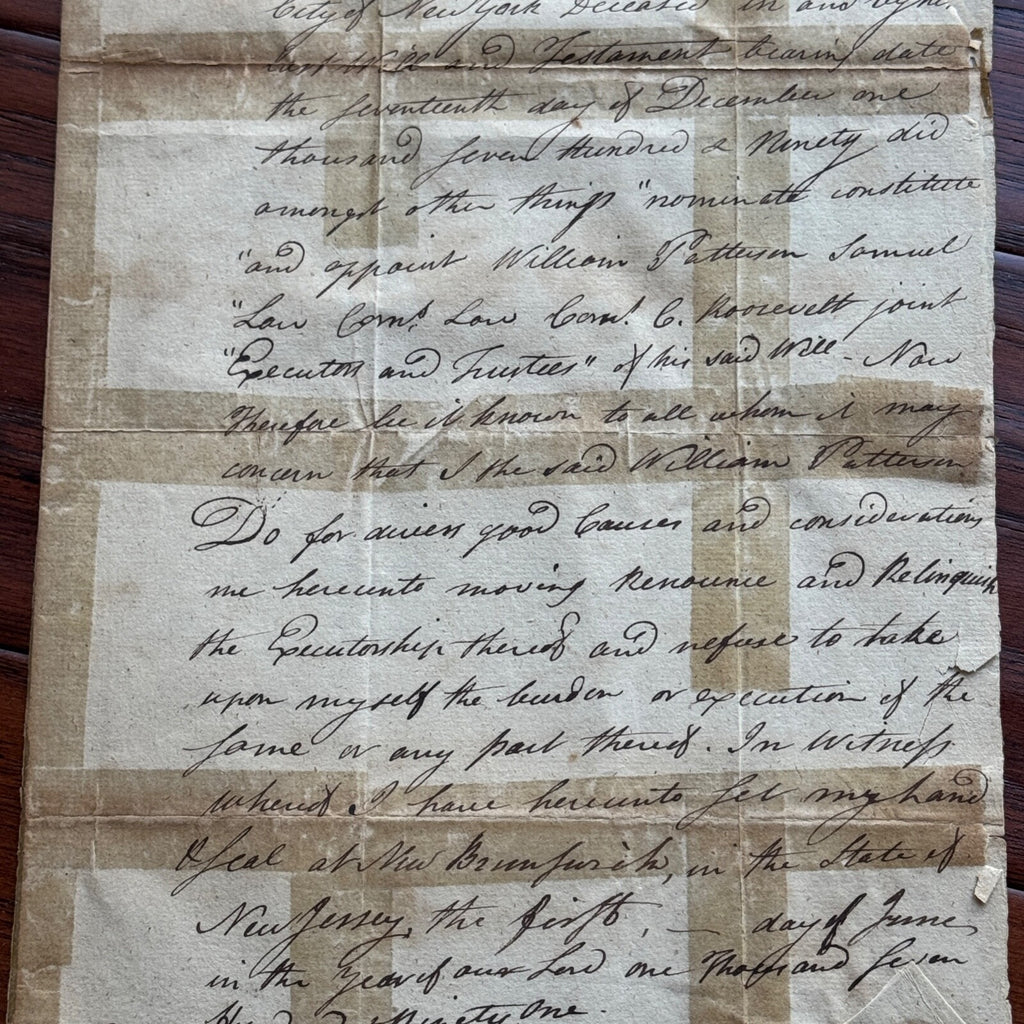 City of New York Deceased in and by his
last Will and Testament bearing date
the seventeenth day of December one
thousand seven Hundred & Ninety did
amongst other things "nominate constitute
"and appoint William Patterson Samuel
"Low Corns. Low Corns. C. Roosevelt joint
"Executors and Trustees" of his said Will - Now
Therefore be it known to all whom it may
concern that I the said William Patterson
Do for divers good Causes and considerations
me hereunto moving Renounce and Relinquish
the Executorship thereof and refuse to take
upon myself the burden or execution of the
same or any part thereof. In Witness
whereof I have hereunto set my hand
& seal at New Brunswick, in the State of
New Jersey, the first, — day of June
in the Year of our Lord one Thousand Seven
Hundred Ninety One.